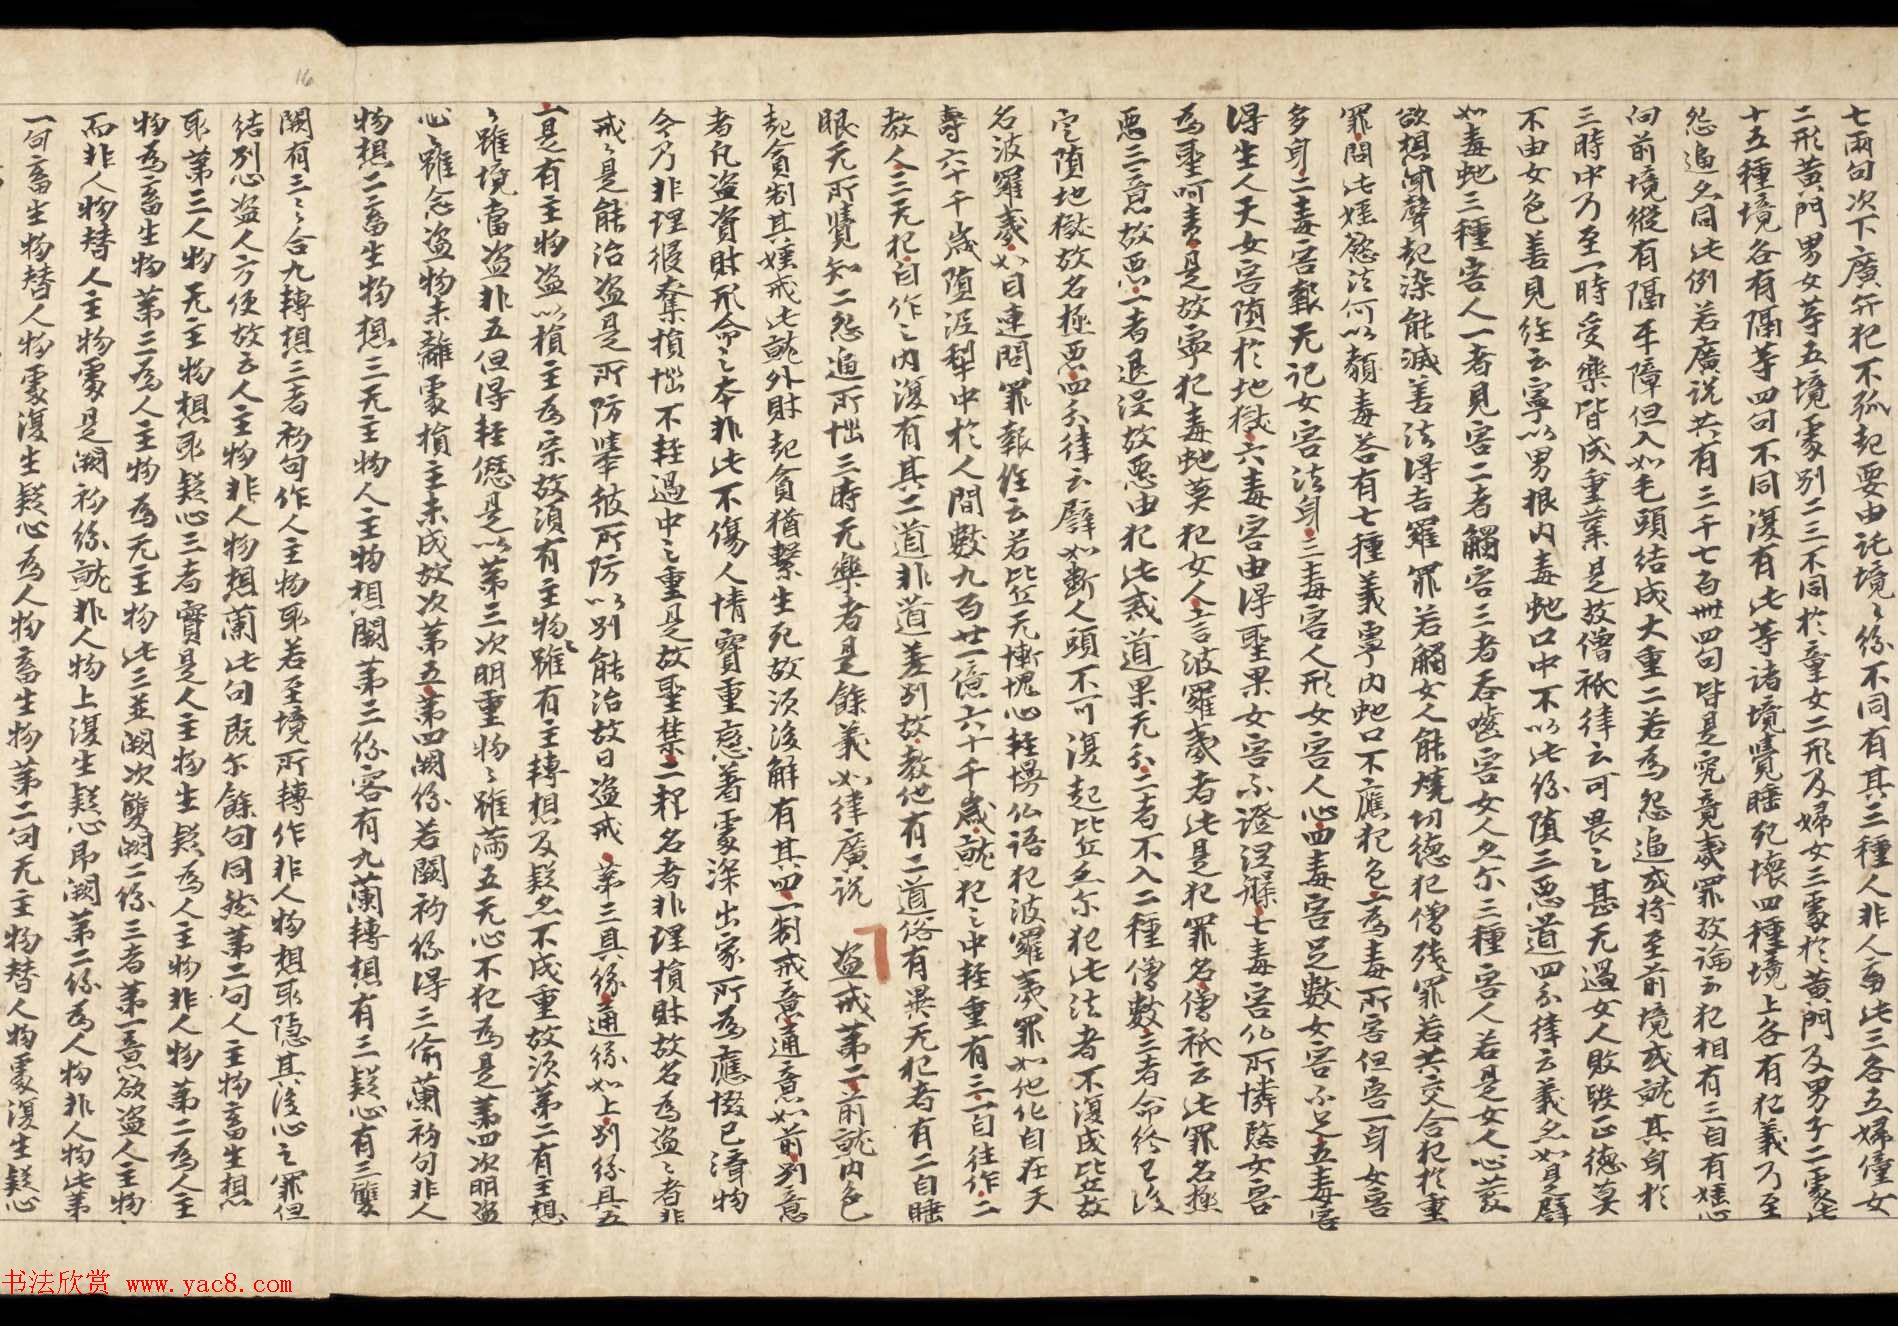 七兩句次下廣範犯不孤起要由託境〻緣不同有其三種人非人畜此三各五婦童女
二形黃門男女等五境處別二三不同於童女二形及婦女三處於黃門及男子二處此
十五種境各有隔等四句不同復有此等諸境覺睡死壞四種境上各有犯義乃至
怨逼亦同此例若廣說共有二千七百卌四句皆是究竟夷罪故論云犯相有三自有婬心
向前境縱有隔平障但入如毛頭結成大重二若為怨逼或將至前境或就其身於
三時中乃至一時受樂皆成重業是故僧祇律云可畏之甚无過女人敗毀正德莫
不由女色善見經云寧以男根內毒蛇口中不以此緣墮三惡道四分律云義亦如是譬
如毒蛇三種害人一者見害二者觸害三者吞噬害女人亦尔三種害人若是女人心發
欲想聞聲起染能滅善法得吉羅罪若觸女人能燒功德犯僧殘罪若共交合犯於重
罪問此婬慾法何以類毒答有七種義寧內蛇口不應犯色一為毒所害但害一身女害
多身二毒害報无記女害法身三毒害人形女害人心四毒害足數女害不足五毒害
得生人天女害墮於地獄六毒害由得聖果女害不證涅槃七毒害仏所憐愍女害
為聖呵責是故寧犯毒蛇莫犯女人言波羅夷者此是犯罪名僧祇云此罪名極
惡三意故惡一者退沒故惡由犯此惑道果无分二者不入二種僧數三者命終已後
定墮地獄故名極惡四分律云譬如斷人頭不可復起比丘亦尔犯此法者不復成比丘故
名波羅夷如目連問罪報經云若比丘无慚愧心輕慢仏語犯波羅夷罪如他化自在天
壽六千千歲墮泥犁中於人間數九百廿一億六十千歲就犯之中輕重有三一自往作二
教人三无犯自作之內復有其二道非道差別故教他有二道俗有異无犯者有二自睡
眠无所覺知二怨逼所惱三時无樂者是餘義如律廣說 盜戒第二前就內色
起貪制其婬戒此就外財起貪猶繫生死故須後解有其四一制戒意通意如前別意
者凡盜資財形命之本非此不傷人情寶重惡著處深出家所為應惙已濟物
今乃非理侵奪損惱不輕過中之重是故聖禁二釋名者非理損財故名為盜〻者非
戒〻是能治盜是所防舉彼所防以別能治故曰盜戒 第三具緣通緣如上別緣具五
一是有主物盜以損主為宗故須有主物雖有主轉想及疑亦不成重故須第二有主想
〻雖境當盜非五但得輕愆是以第三次明重物〻雖滿五无心不犯為是第四次明盜
心〻雖念盜物未離處損主未成故次第五第四闕緣若闕初緣得三偷蘭初句非人
物想二畜生物想三无主物人主物想闕第二緣容有九蘭轉想有三疑心有三雙
闕有三〻合九轉想三者初句作人主物取若至境所轉作非人物想取隱其後心之罪但
結別心盜人方便故云人主物非人物想蘭此句既尔餘句同然第二句人主物畜生想
取第三人物无主物想取疑心三者實是人主物生疑為人主物非人物第二為人主
物為畜生物第三為人主物為无主物此三並闕次雙闕二緣三者第一意欲盜人主物
而非人物替人主物處是闕初緣就非人物上復生疑心即闕第二緣為人物非人物此第
一句畜生物替人物處復生疑心為人物畜生物第二句无主物替人物處復生疑心
16
书法欣赏 www.yac8.com